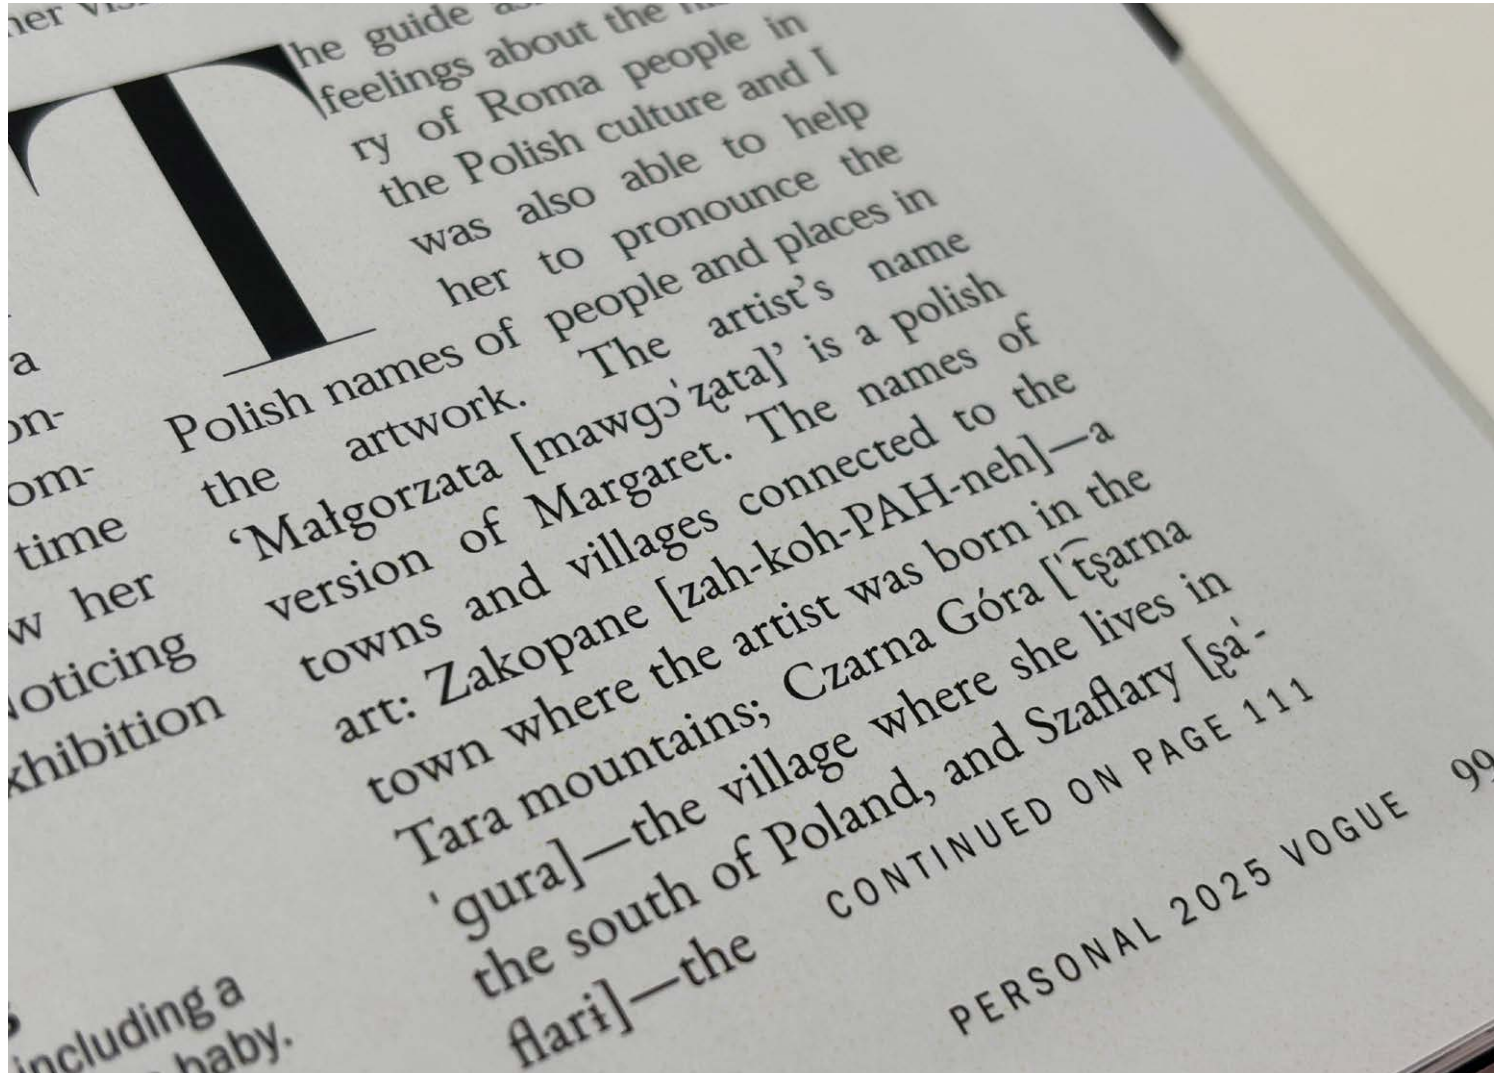 her
he guide
feelings about the
ry of Roma people in
the Polish culture and I
was also able to help
her to pronounce the
Polish names of people and places in
the artwork. The artist's name
‘Małgorzata [mawgɔˈʐata]’ is a polish
version of Margaret. The names of
towns and villages connected to the
art: Zakopane [zah-koh-PAH-neh]—a
town where the artist was born in the
Tara mountains; Czarna Góra [ˈt͡ʂarna
ˈgura]—the village where she lives in
the south of Poland, and Szaflary [ʂaˈ-
flarɨ]—the
CONTINUED ON PAGE 111
a
on-
om-
time
w her
oticing
xhibition
including a
baby.
PERSONAL 2025 VOGUE 99